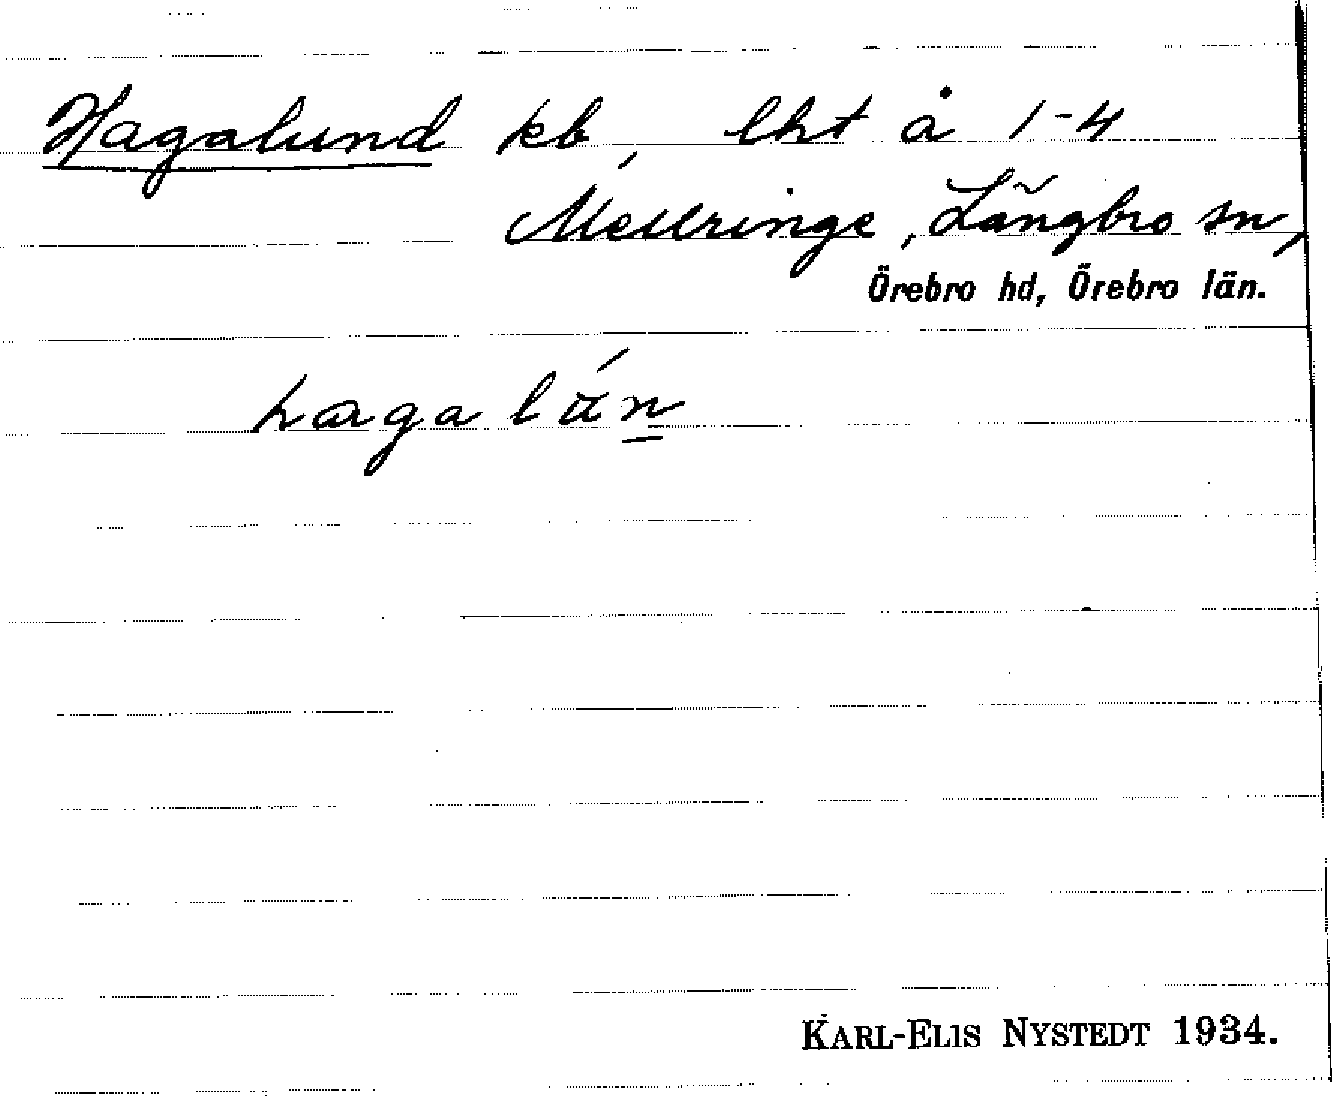 Hagalund kb, lht å 1-4
Mellringe, Längbro sn,
Örebro hd, Örebro län.
KARL-ELIS NYSTEDT 1934.